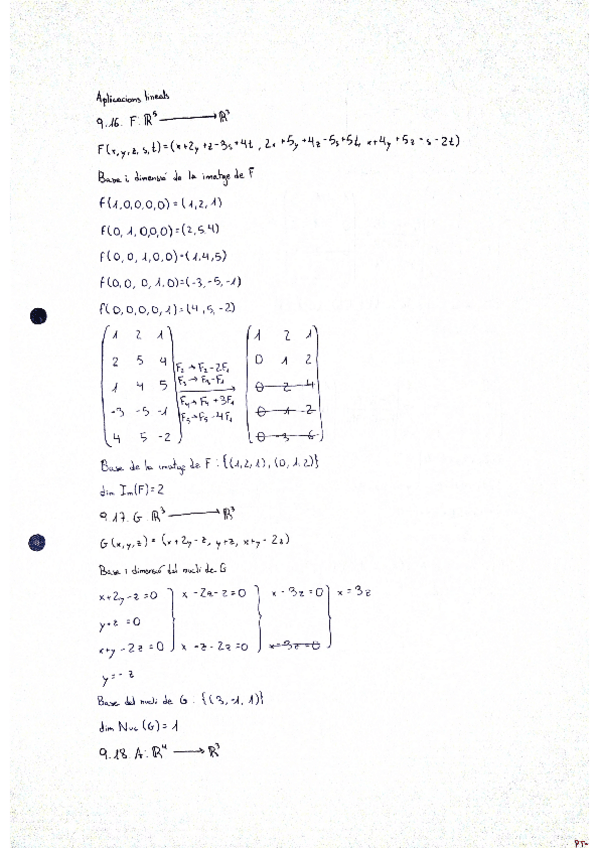 Aplicacions lineals
9.16. F: ℝ⁵ ⟶ ℝ³
F(x,y,z,s,t)=(x+2y+z-3s+4t, 2x+5y+4z-5s+5t, x+4y+5z-s-2t)
Base i dimensió de la imatge de F
f(1,0,0,0,0)=(1,2,1)
f(0,1,0,0,0)=(2,5,4)
f(0,0,1,0,0)=(1,4,5)
f(0,0,0,1,0)=(-3,-5,-1)
f(0,0,0,0,1)=(4,5,-2)
1 2 1 1 2 1
2 5 4 F₂→F₂-2F₁ 0 1 2
1 4 5 F₃→F₃-F₁ 0 2 4
-3 -5 -1 F₄→F₄+3F₁ 0 1 2
4 5 -2 F₅→F₅-4F₁ 0 -3 -6
Base de la imatge de F: {(1,2,1),(0,1,2)}
dim Im(F)=2
9.17. G: ℝ³ ⟶ ℝ³
G(x,y,z)=(x+2y-z, y+z, x+y-2z)
Base i dimensió del nucli de G
x+2y-z=0 } x-2z-z=0 } x-3z=0 } x=3z
y+z=0
x+y-2z=0 x-z-2z=0 x-3z=0
y=-z
Base del nucli de G: {(3,-1,1)}
dim Nuc(G)=1
9.18. A: ℝ⁴ ⟶ ℝ³